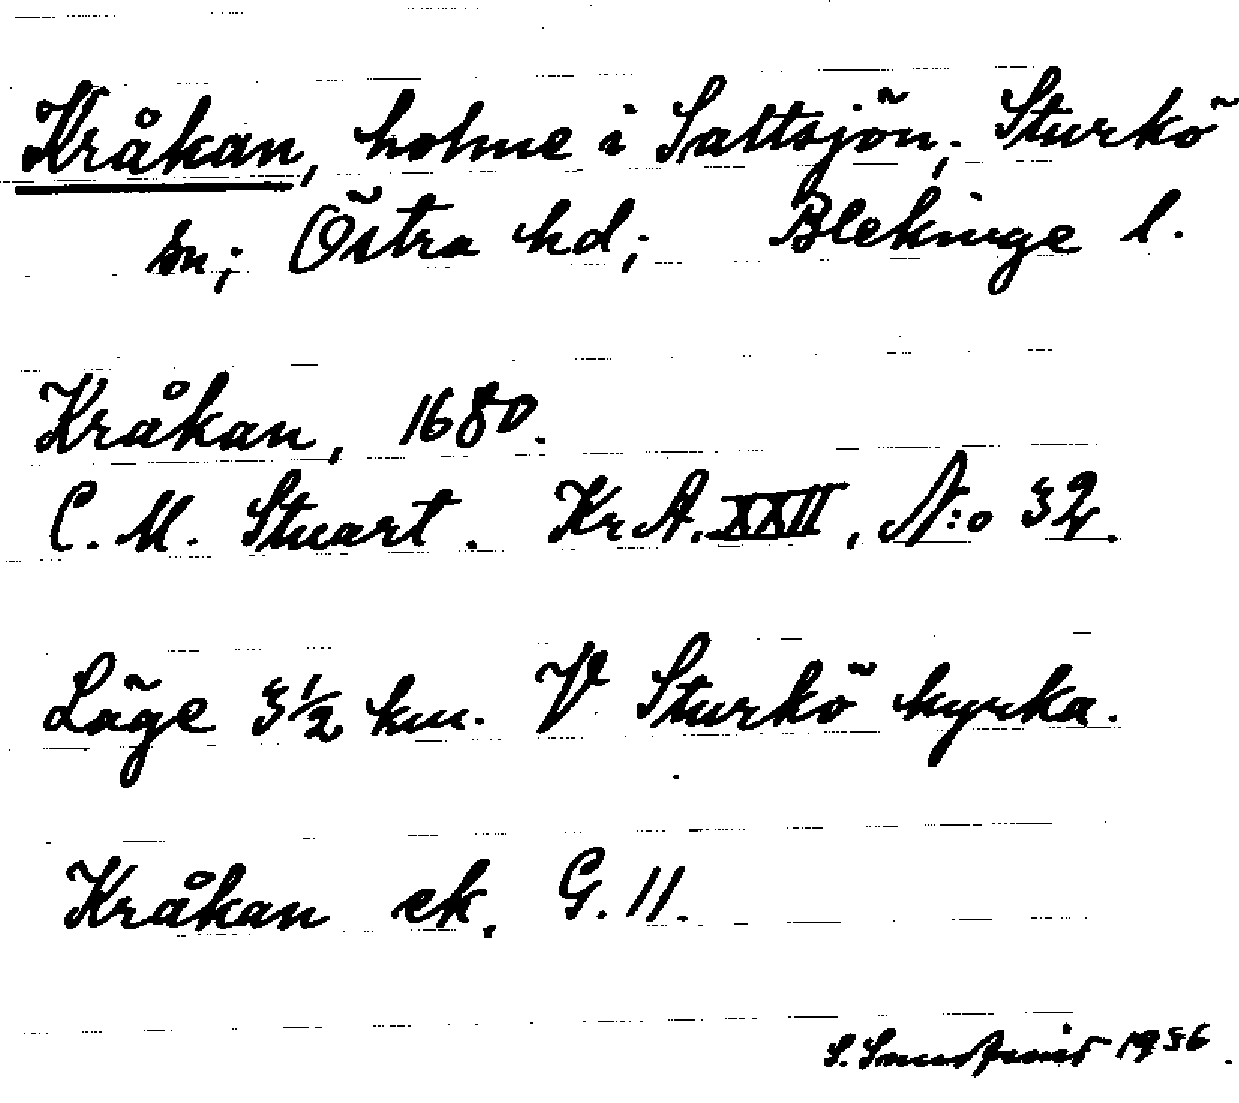 Kråkan, holme i Saltsjön; Sturkö
sn; Östra hd; Blekinge l.
Kråkan, 1680.
C. M. Stuart. Kr A. XXII, N:o 32.
Läge 3½ km. V Sturkö kyrka.
Kråkan ek. G. 11.
S. 1936.